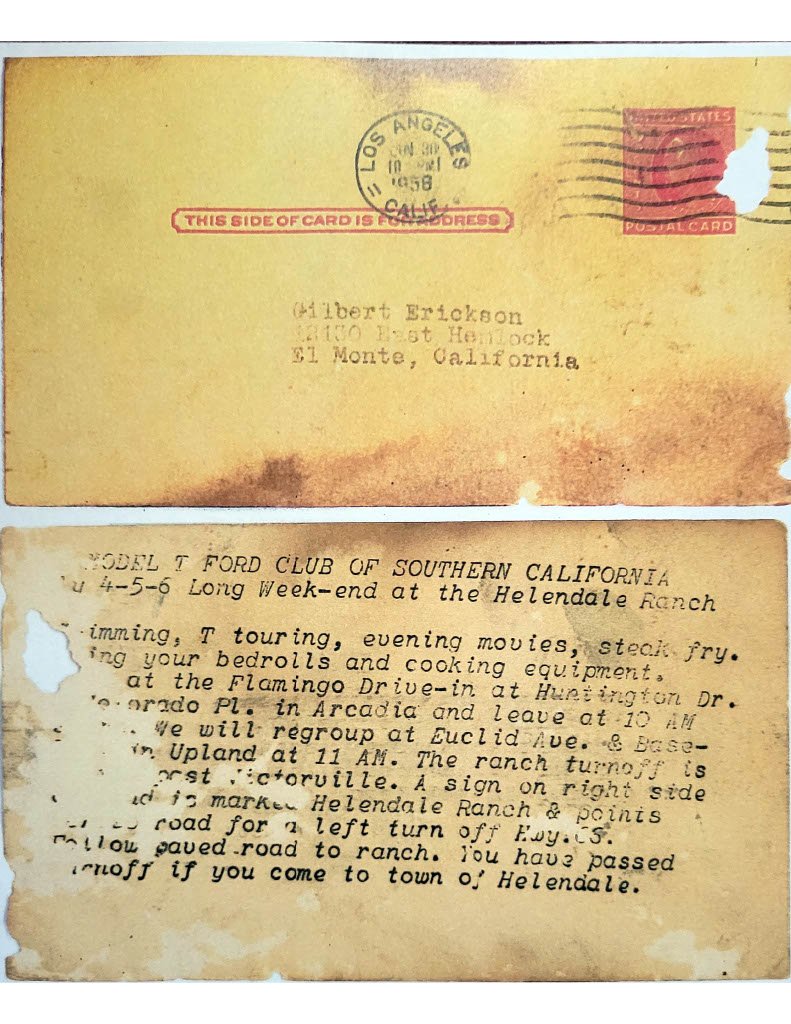 LOS ANGELES
30
10 PM
1958
CALIF.
UNITED STATES
POSTAL CARD
THIS SIDE OF CARD IS FOR ADDRESS
Gilbert Erickson
East Hemlock
El Monte, California
MODEL T FORD CLUB OF SOUTHERN CALIFORNIA
4-5-6 Long Week-end at the Helendale Ranch
imming, T touring, evening movies, steak fry.
ing your bedrolls and cooking equipment.
at the Flamingo Drive-in at Huntington Dr.
orado Pl. in Arcadia and leave at 10 AM
We will regroup at Euclid Ave. & Base-
in Upland at 11 AM. The ranch turnoff is
past Victorville. A sign on right side
is marked Helendale Ranch & points
road for a left turn off Hwy.
Follow paved road to ranch. You have passed
turnoff if you come to town of Helendale.